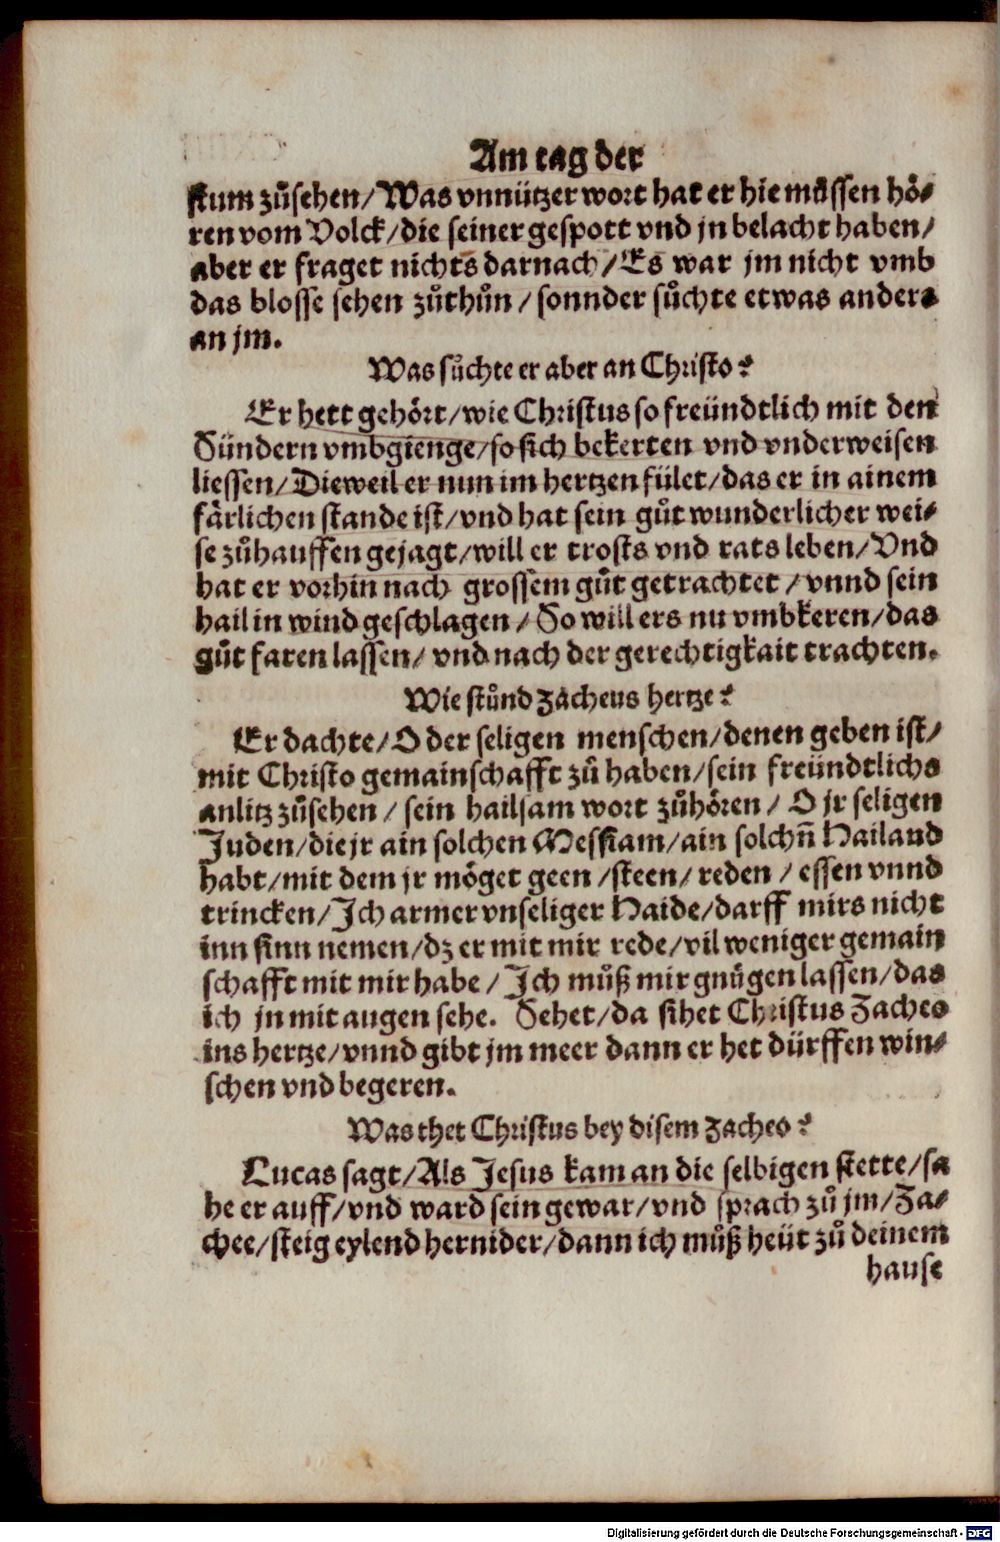 Am tag der
stum zůsehen/Was vnnützer wort hat er hie můssen hö-
ren vom Volck/die seiner gespott vnd jn belacht haben/
aber er fraget nichts darnach/Es war jm nicht vmb
das blosse sehen zůthůn/sonnder sůchte etwas anders
an jm.
Was sůchte er aber an Christo?
Er hett gehört/wie Christus so freündtlich mit den
Sündern vmbgienge/so sich bekerten vnd vnderweisen
liessen/Dieweil er nun im hertzen fület/das er in ainem
färlichen stande ist/vnd hat sein gůt wunderlicher wei-
se zůhauffen gejagt/will er trosts vnd rats leben/Vnd
hat er vorhin nach grossem gůt getrachtet/vnnd sein
hail in wind geschlagen/So will ers nu vmbkeren/das
gůt faren lassen/vnd nach der gerechtigkait trachten.
Wie stůnd Zacheus hertze?
Er dachte/O der seligen menschen/denen geben ist/
mit Christo gemainschafft zů haben/sein freündtlichs
anlitz zůsehen/sein hailsam wort zůhören/O jr seligen
Juden/die jr ain solchen Messiam/ain solchñ Hailand
habt/mit dem jr möget geen/steen/reden/essen vnnd
trincken/Ich armer vnseliger Haide/darff mirs nicht
inn sinn nemen/dz er mit mir rede/vil weniger gemain
schafft mit mir habe/Ich můß mir gnůgen lassen/das
ich jn mit augen sehe. Sehet/da sihet Christus Zacheo
ins hertze/vnnd gibt jm meer dann er het dürffen win-
schen vnd begeren.
Was thet Christus bey disem Zacheo?
Lucas sagt/Als Jesus kam an die selbigen stette/sa
he er auff/vnd ward sein gewar/vnd sprach zů jm/Za-
chee/steig eylend hernider/dann ich můß heüt zů deinem
hause
Digitalisierung gefördert durch die Deutsche Forschungsgemeinschaft - DFG